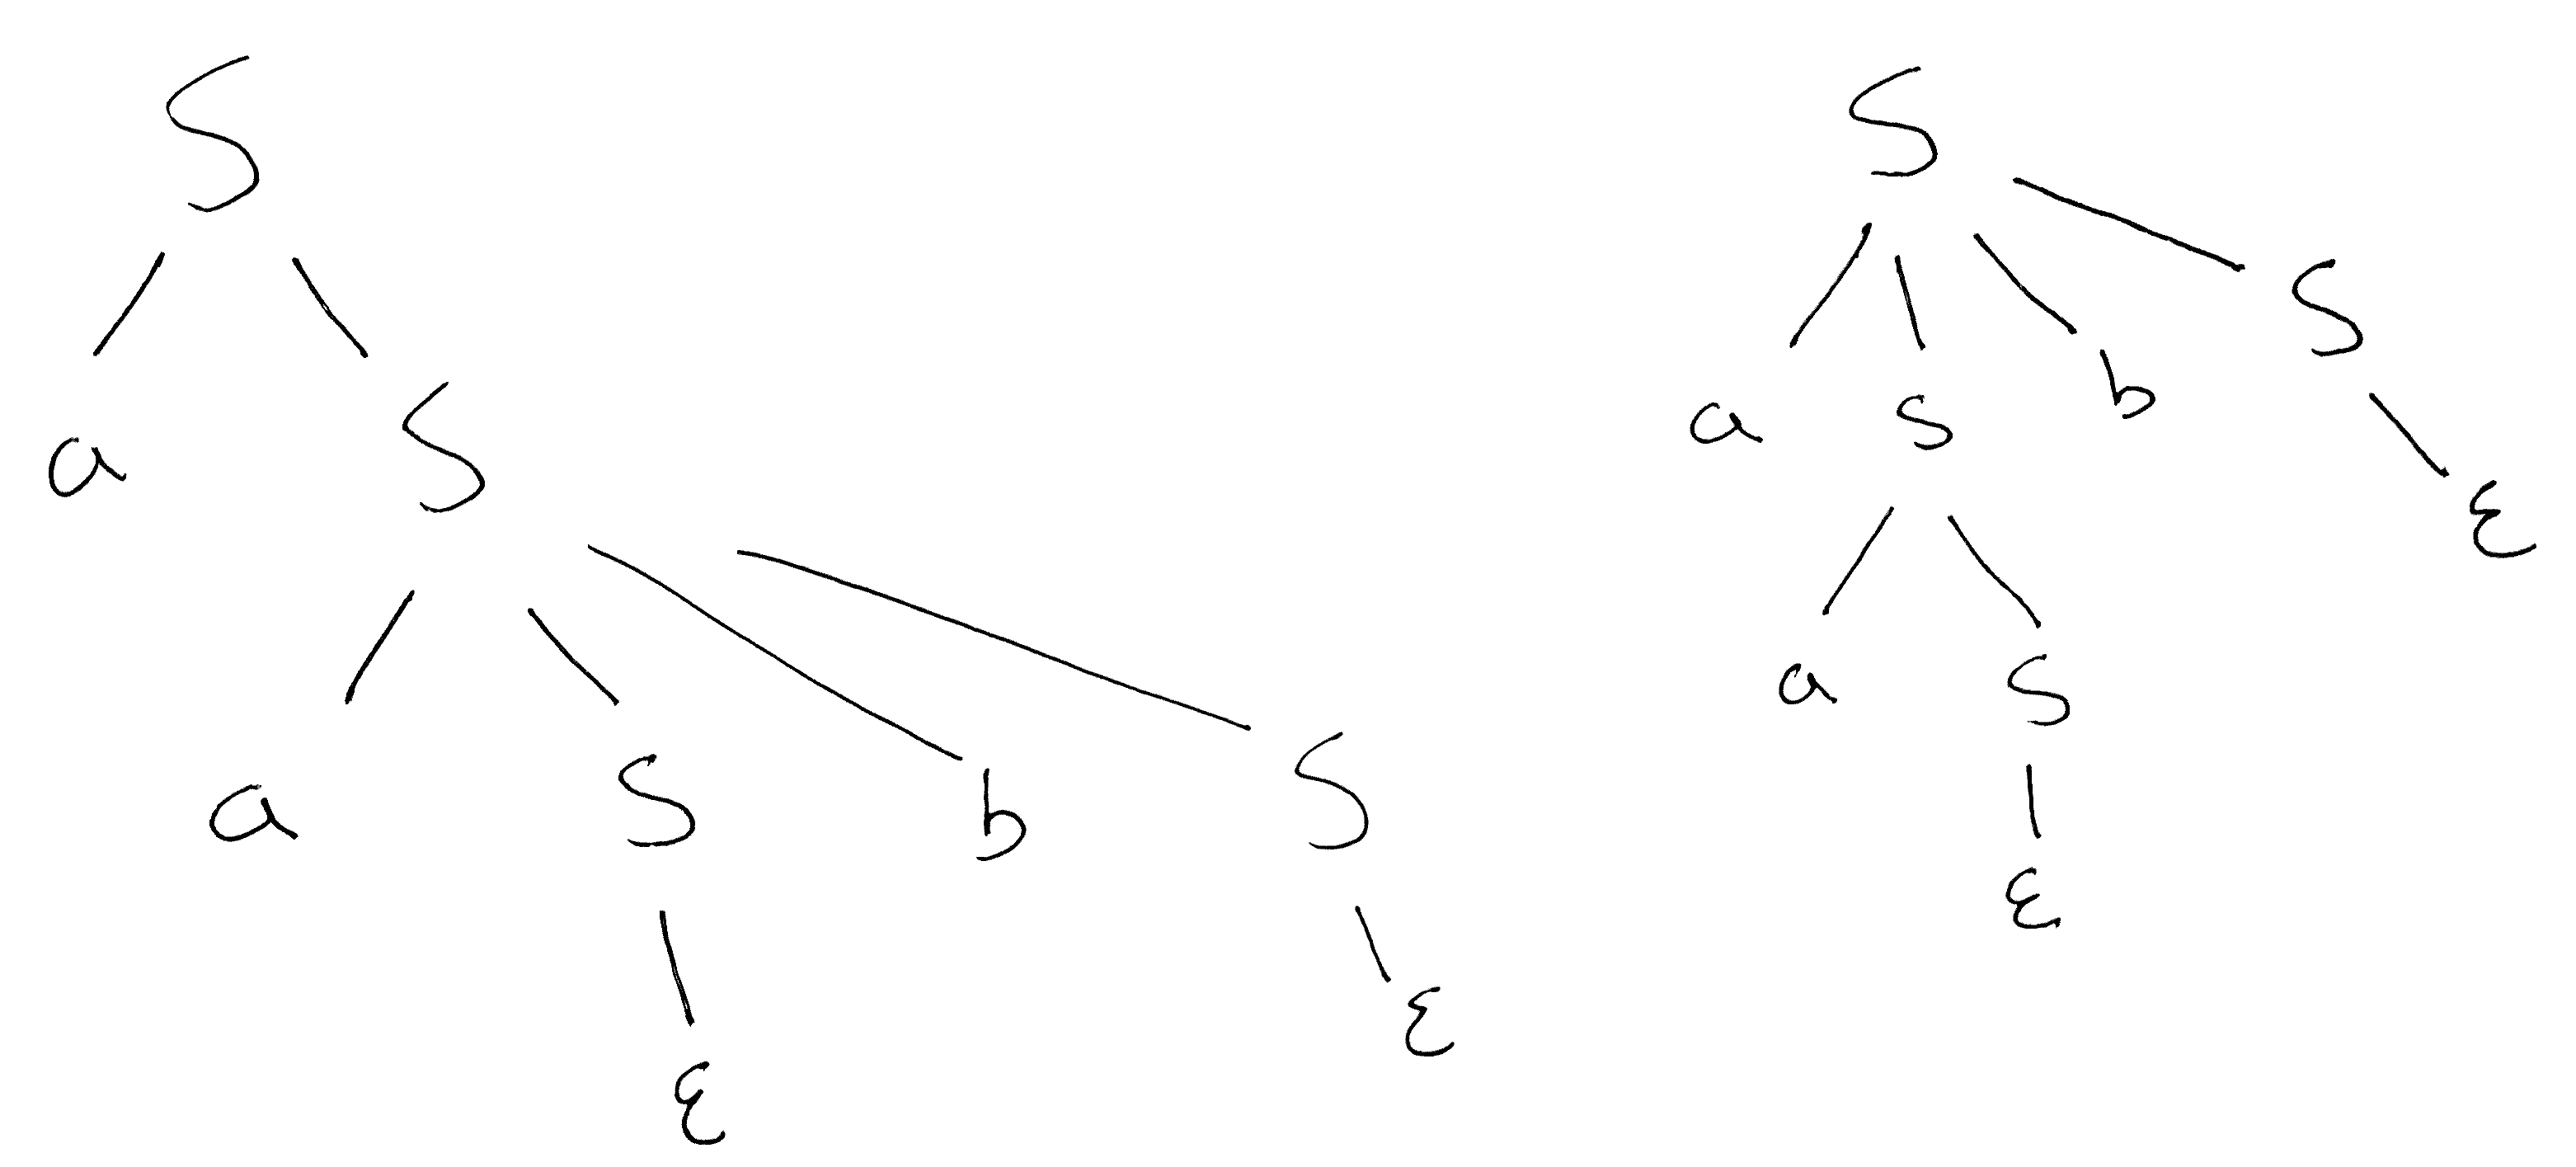 S
a S
a S b S
ε ε
S
a S b S
a S ε
ε